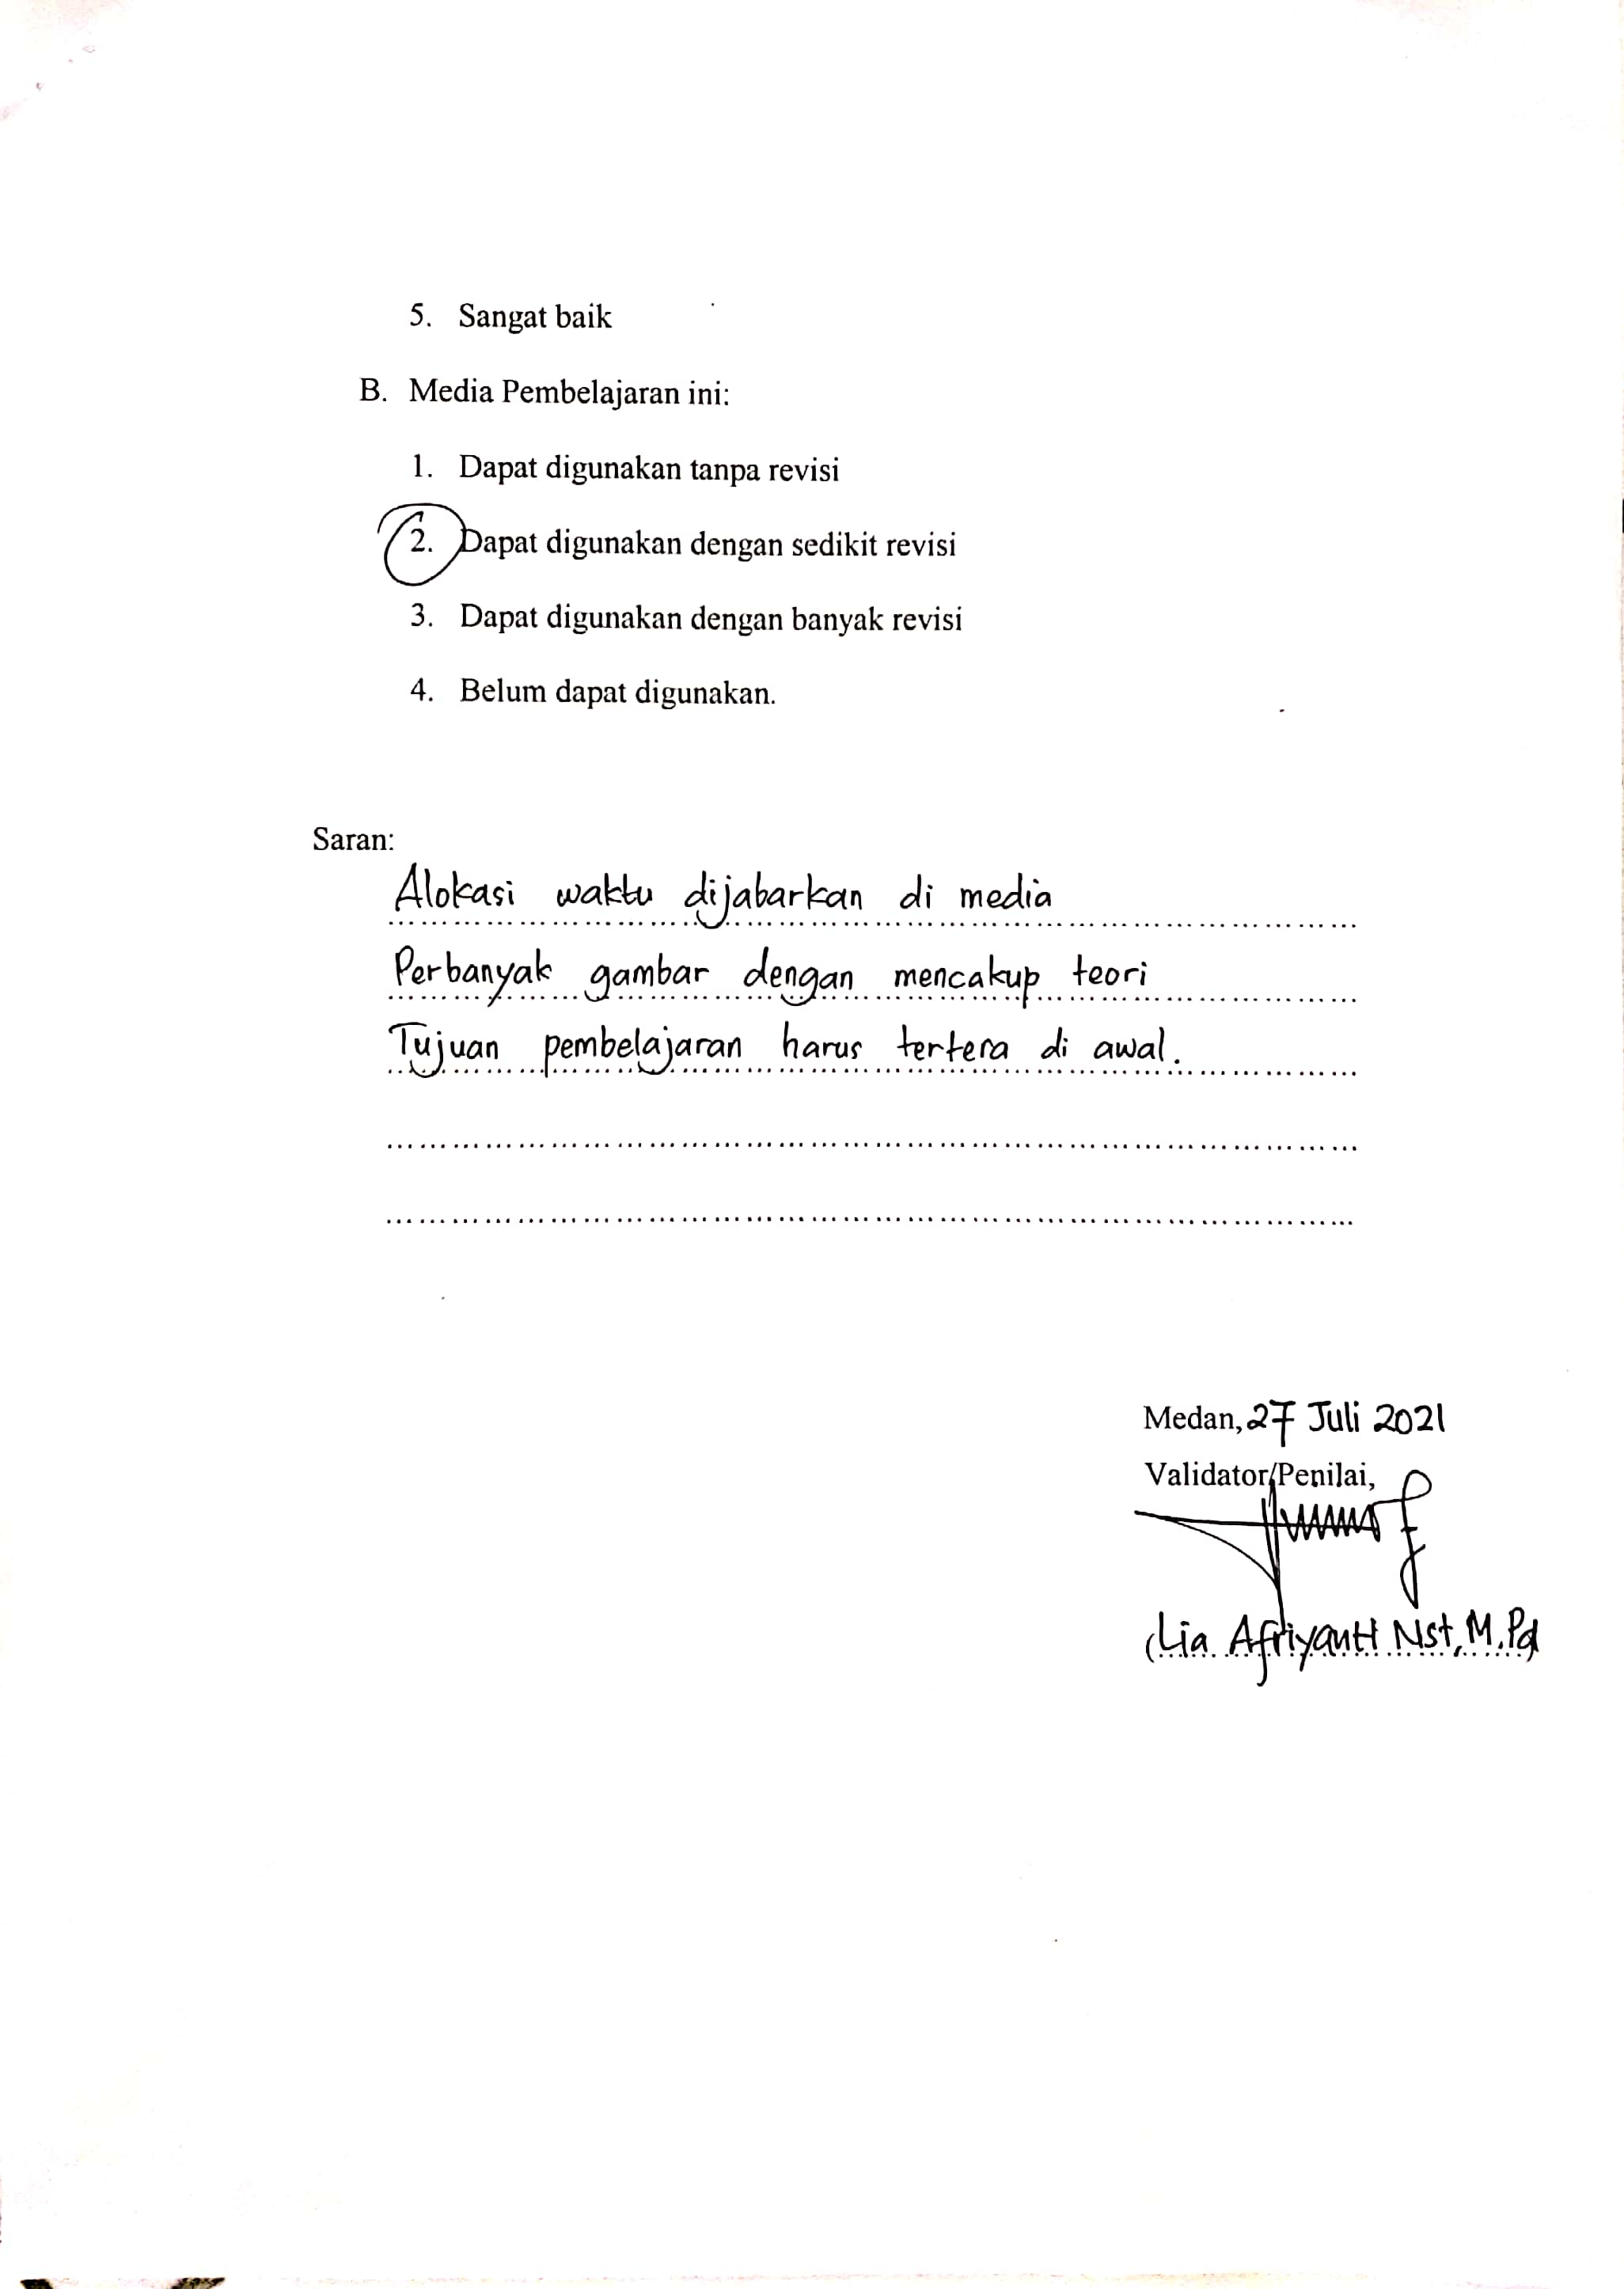 5. Sangat baik
B. Media Pembelajaran ini:
1. Dapat digunakan tanpa revisi
2. Dapat digunakan dengan sedikit revisi
3. Dapat digunakan dengan banyak revisi
4. Belum dapat digunakan.
Saran:
Alokasi waktu dijabarkan di media
Perbanyak gambar dengan mencakup teori
Tujuan pembelajaran harus tertera di awal.
Medan, 27 Juli 2021
Validator/Penilai,
(Lia Afriyanti Nst, M.Pd)